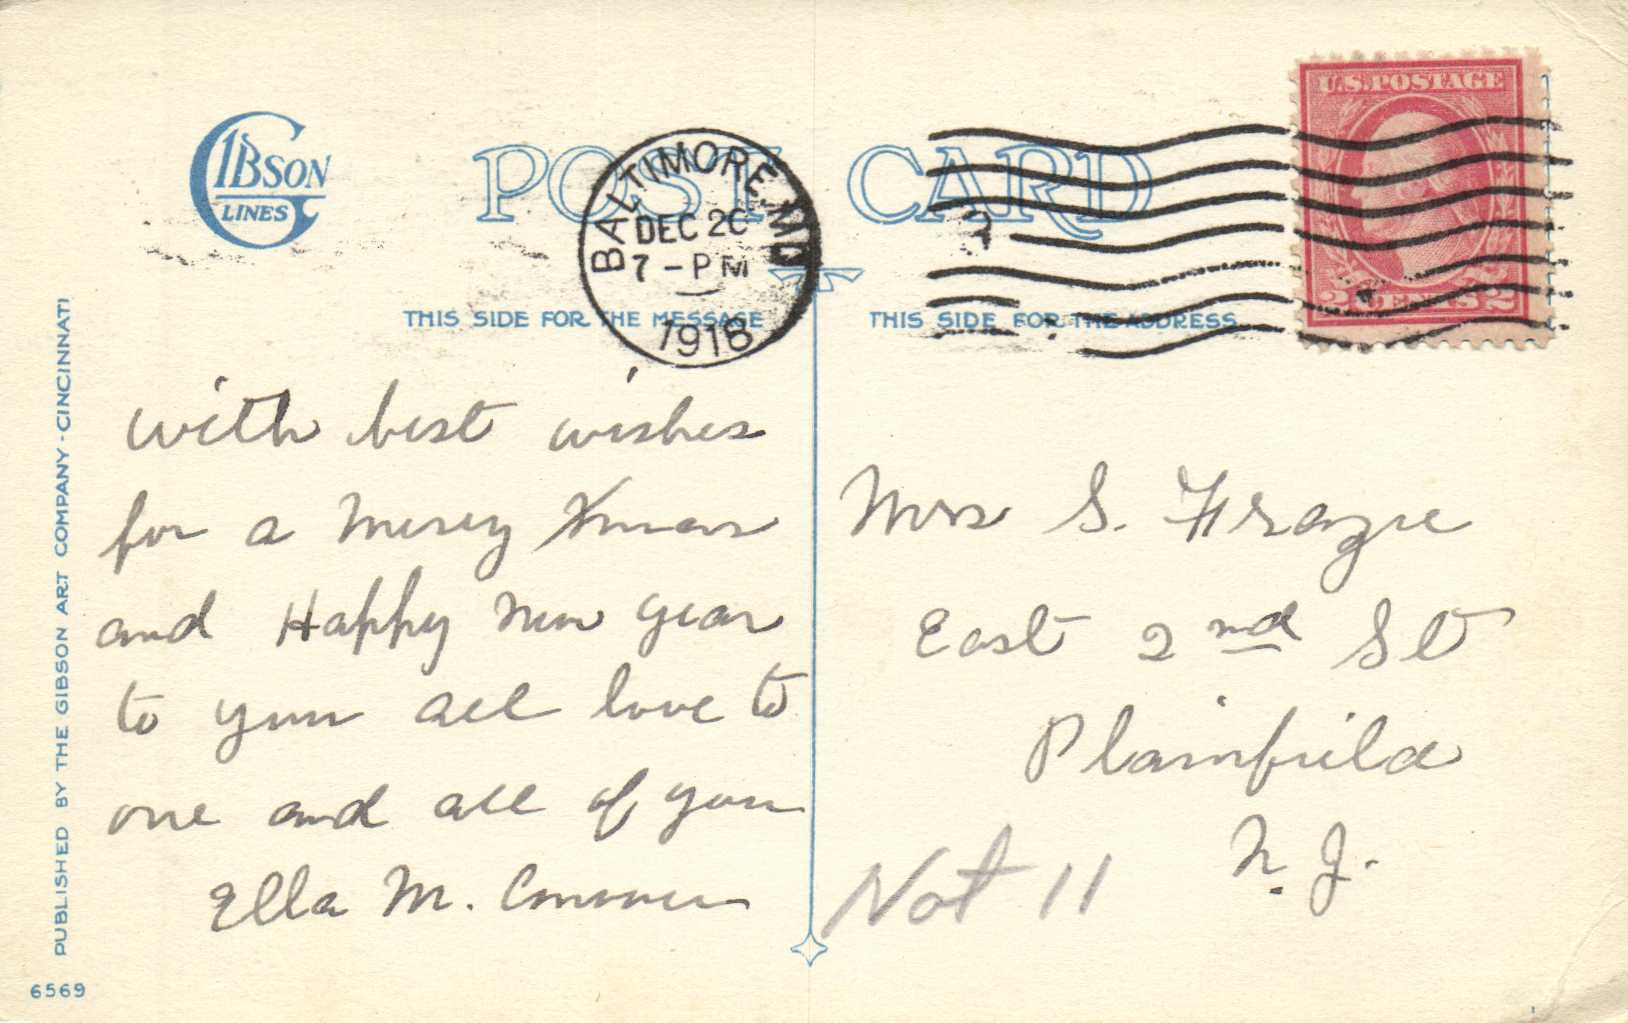 GIBSON
LINES
POST CARD
BALTIMORE, MD
DEC 20
7 - PM
1918
U.S. POSTAGE
2 CENTS 2
THIS SIDE FOR THE MESSAGE
THIS SIDE FOR THE ADDRESS
with best wishes
for a Merry Xmas
and Happy New year
to you all love to
one and all of you
Ella M.
Mrs S. Frazee
East 2nd St
Plainfield
N. J.
Not 11
PUBLISHED BY THE GIBSON ART COMPANY - CINCINNATI
6569